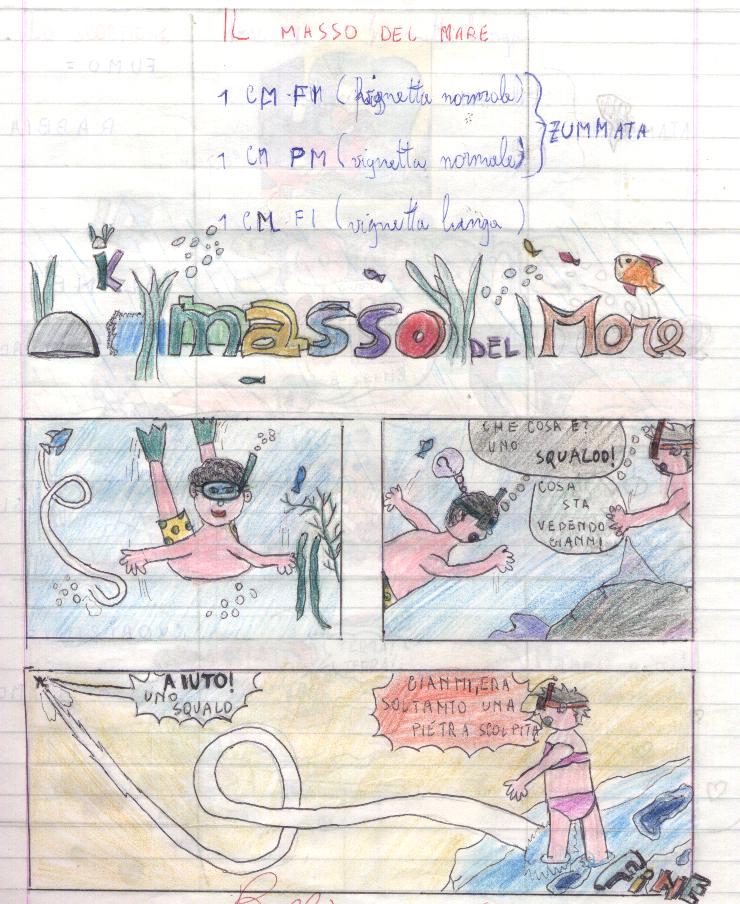 IL MASSO DEL MARE
1 CM-FM (Vignetta normale)
1 CM PM (vignetta normale)
ZUMMATA
1 CM-FI (vignetta lunga)
il masso DEL Mare
CHE COSA È?
UNO
SQUALOO!
COSA
STA
VEDENDO
GIANNI
AIUTO!
UNO
SQUALO
GIANNI, ERA
SOLTANTO UNA
PIETRA SCOLPITA
FINE